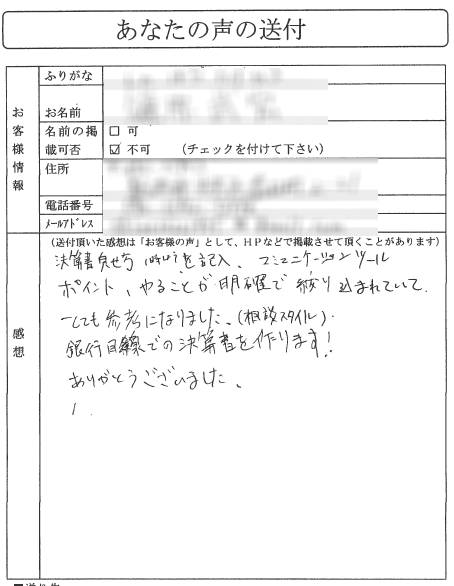 あなたの声の送付
お客様情報
ふりがな
お名前
名前の掲載可否
□ 可
☑ 不可 (チェックを付けて下さい)
住所
電話番号
メールアドレス
感想
(送付頂いた感想は「お客様の声」として、HPなどで掲載させて頂くことがあります)
決算書 を記入、コミュニケーションツール
ポイント、やることが明確で絞り込まれていて、
とても参考になりました。(相談スタイル)
銀行目線での決算書を作ります!
ありがとうございました。